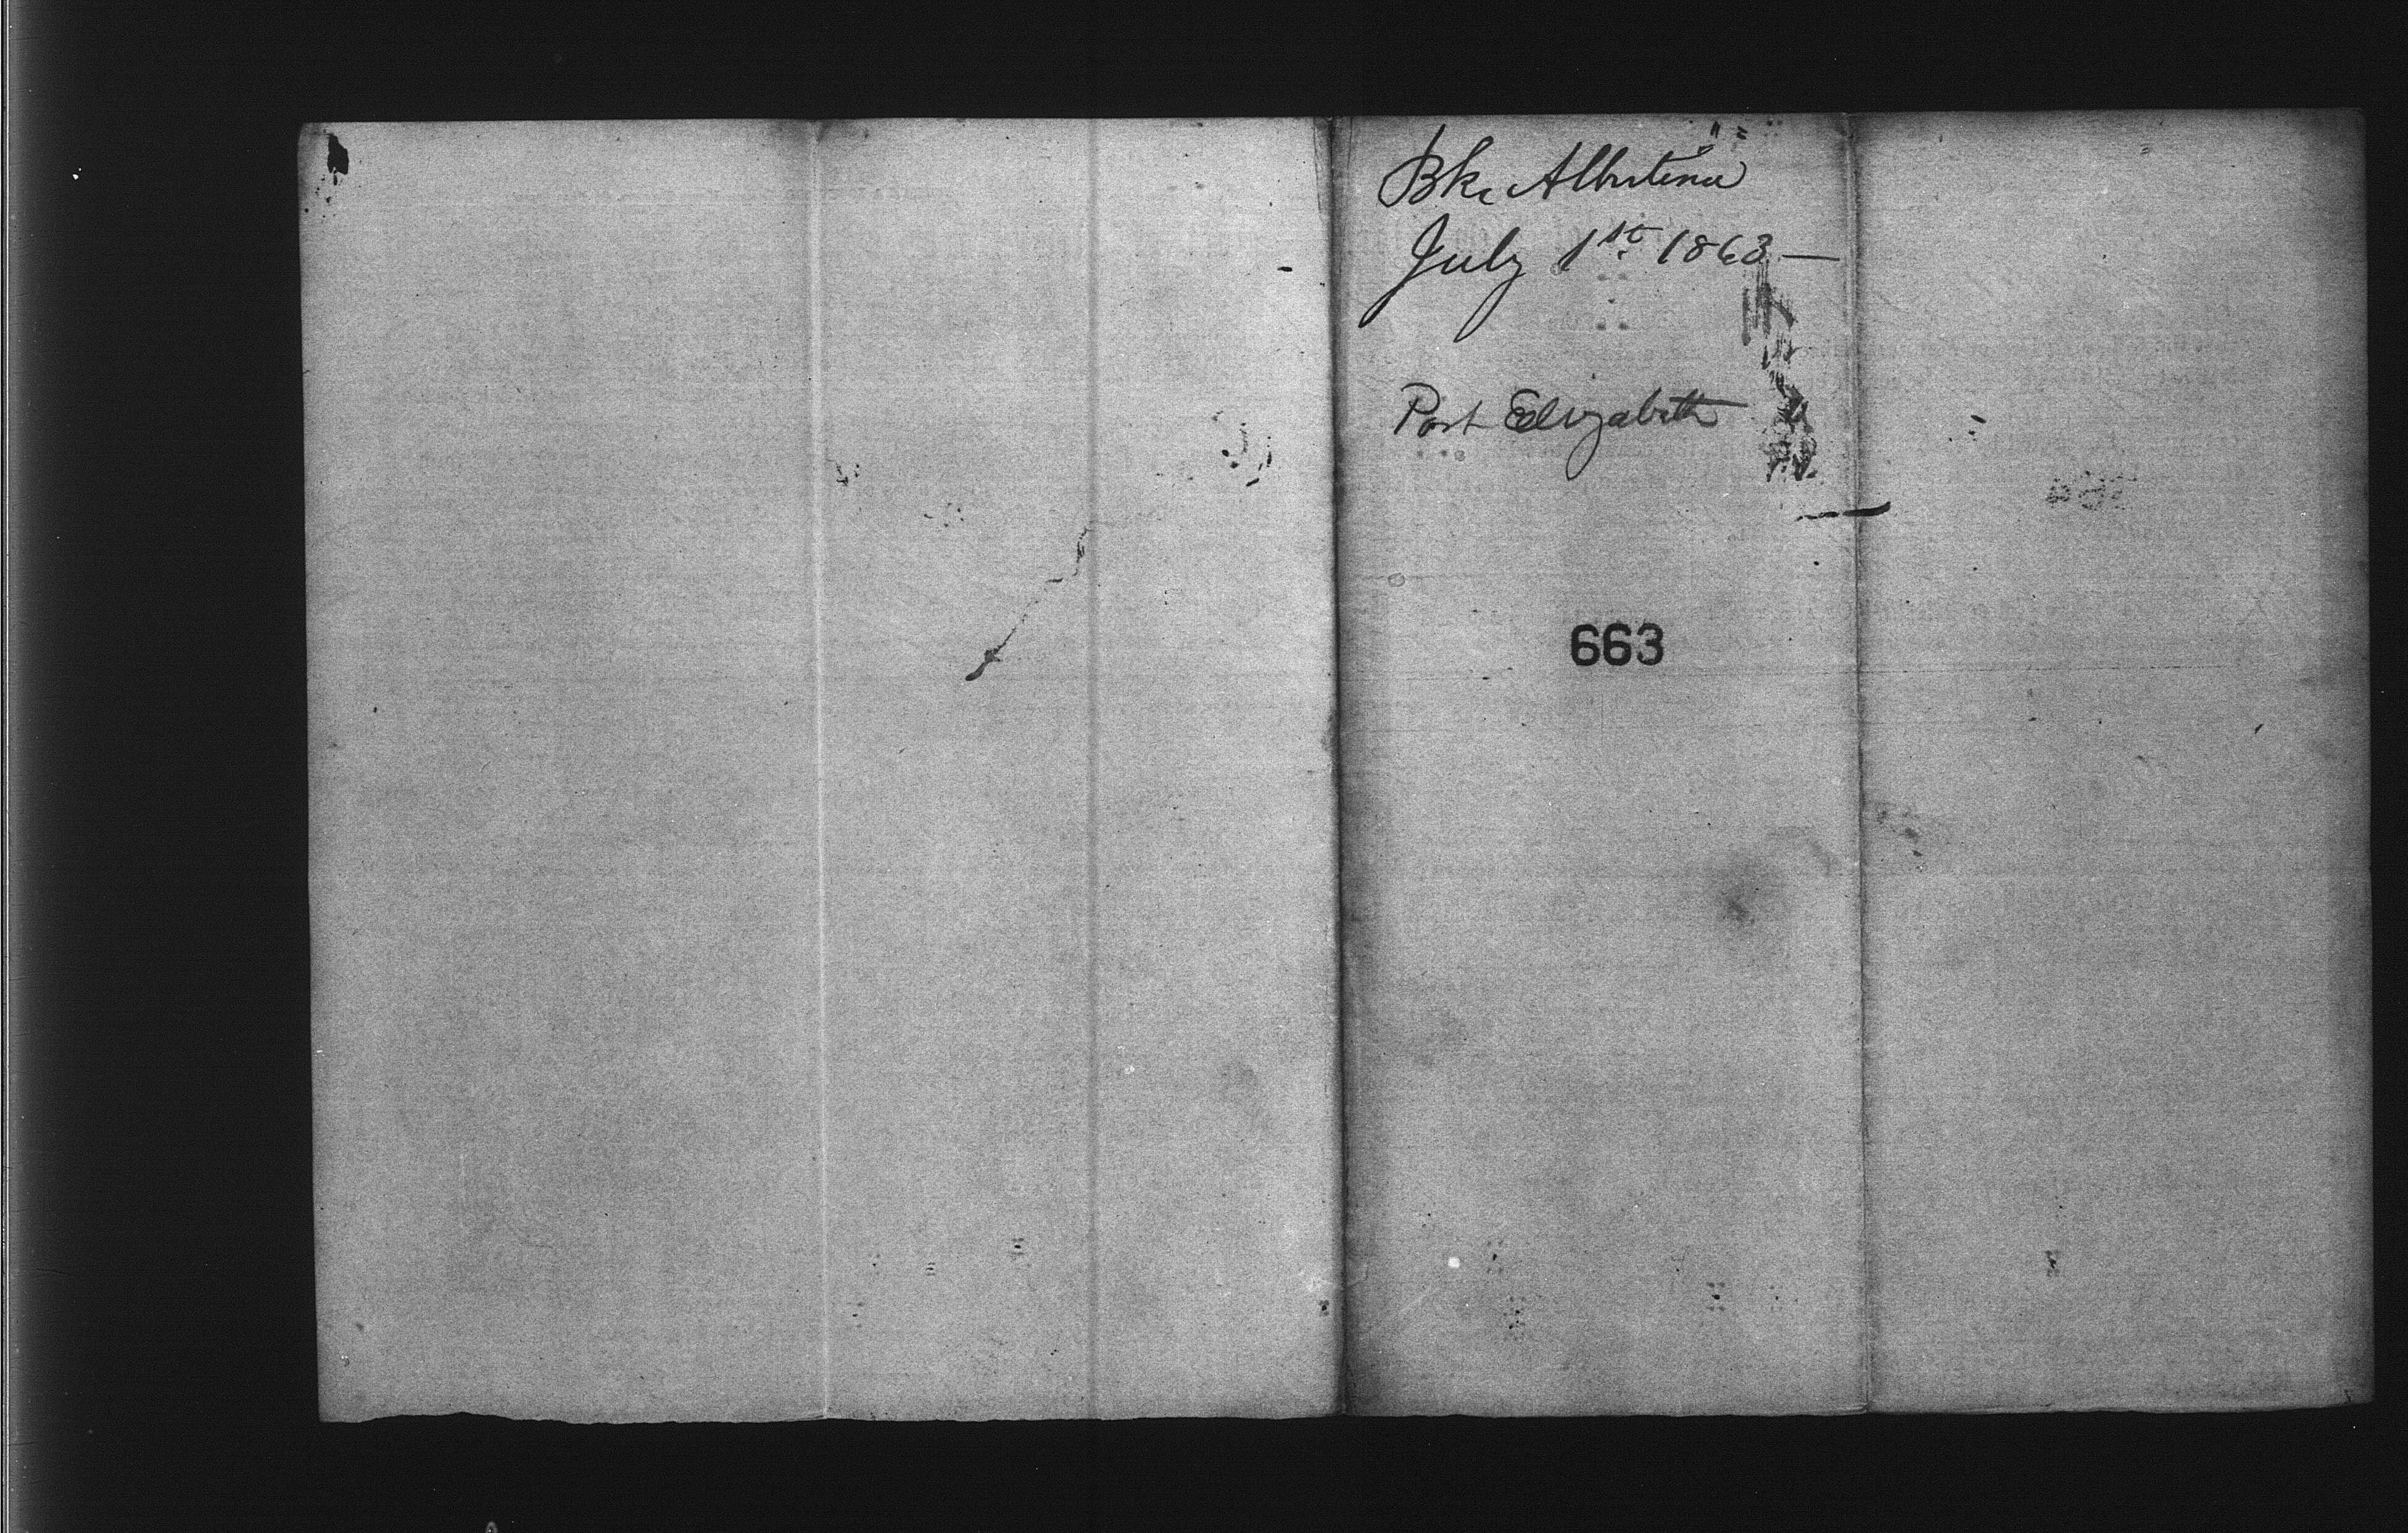 Bke Albertina
July 1st 1863 —
Port Elizabeth
663